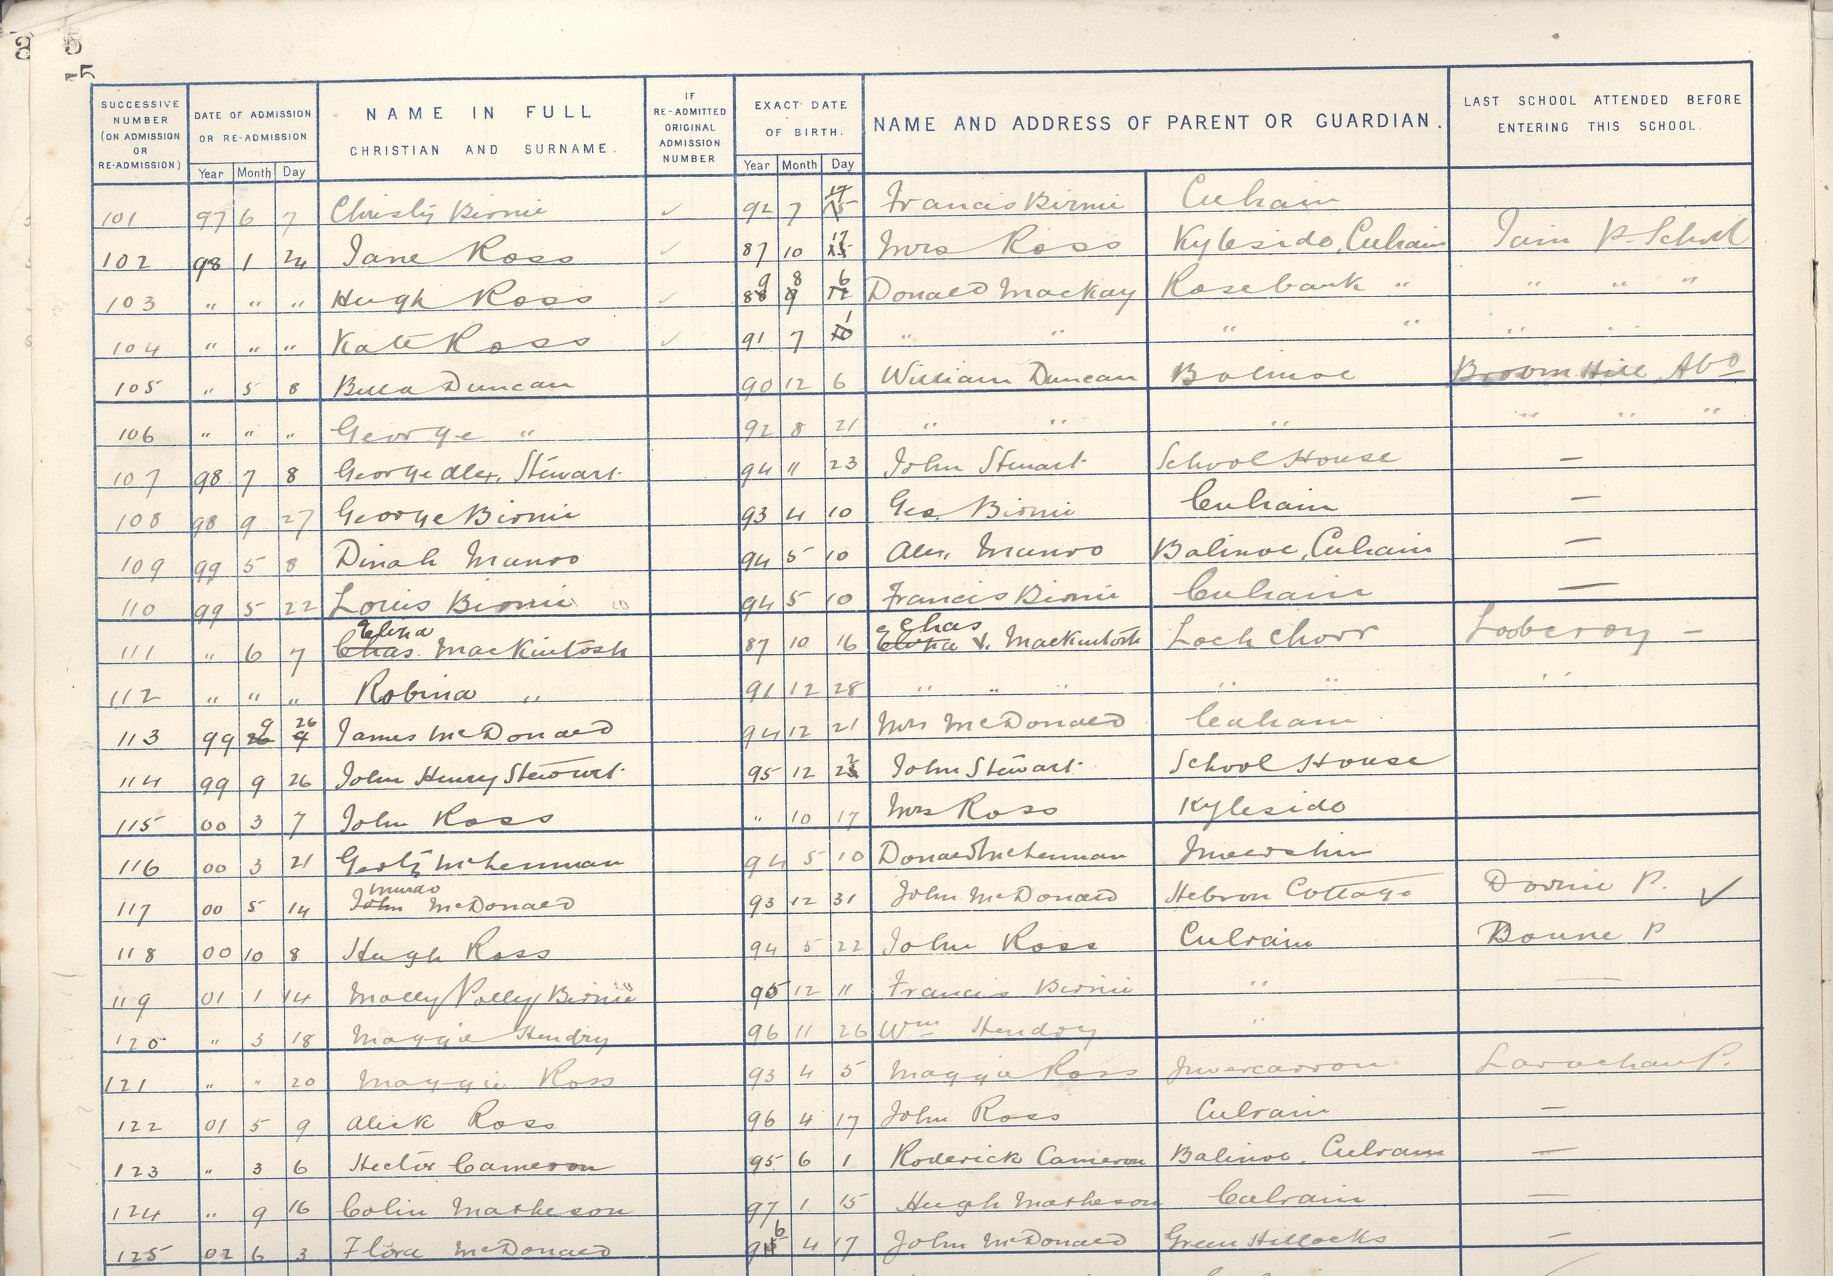 3 5
15
SUCCESSIVE NUMBER (ON ADMISSION OR RE-ADMISSION) DATE OF ADMISSION OR RE-ADMISSION NAME IN FULL CHRISTIAN AND SURNAME. IF RE-ADMITTED ORIGINAL ADMISSION NUMBER EXACT DATE OF BIRTH. NAME AND ADDRESS OF PARENT OR GUARDIAN. LAST SCHOOL ATTENDED BEFORE ENTERING THIS SCHOOL.
Year Month Day Year Month Day
101 97 6 7 Christy Birnie ✓ 92 7 Francis Birnie Culrain
102 98 1 24 Jane Ross ✓ 87 10 17 Mrs Ross Kyleside, Culrain Tain P. School
103 " " " Hugh Ross ✓ 9 8 6 Donald Mackay Rosebank " " " "
104 " " " Kate Ross ✓ 91 7 1 " " " " " "
105 " 5 8 Bella Duncan 90 12 6 William Duncan Balinoe Broomhill Abd
106 " " " George " 92 8 21 " " " " " "
107 98 7 8 George Alex. Stewart 94 11 23 John Stewart School House —
108 98 9 27 George Birnie 93 4 10 Geo. Birnie Culrain —
109 99 5 8 Dinah Munro 94 5 10 Alex. Munro Balinoe, Culrain —
110 99 5 22 Louis Birnie 94 5 10 Francis Birnie Culrain —
111 " 6 7 Elvina Chas. MacKintosh 87 10 16 Chas Elvina V. MacKintosh Loch Chorr Lodberoy —
112 " " " Robina " 91 12 28 " " " " " "
113 99 9 26 James McDonald 94 12 21 Mrs McDonald Culrain
114 99 9 26 John Henry Stewart 95 12 John Stewart School House
115 00 3 7 John Ross " 10 17 Mrs Ross Kyleside
116 00 3 21 Gerty McLennan 94 5 10 Donald McLennan Invershin
117 00 5 14 Murdo John McDonald 93 12 31 John McDonald Hebron Cottage Dornie P. ✓
118 00 10 8 Hugh Ross 94 5 22 John Ross Culrain Boune P
119 01 1 14 Molly/Polly/Birnie 95 12 11 Francis Birnie " —
120 " 3 18 Maggie Hendry 96 11 26 Wm Hendry "
121 " " 20 Maggie Ross 93 4 5 Maggie Ross Invercarron Larachan P.
122 01 5 9 Alick Ross 96 4 17 John Ross Culrain —
123 " 3 6 Hector Cameron 95 6 1 Roderick Cameron Balinoe, Culrain —
124 " 9 16 Colin Matheson 97 1 15 Hugh Matheson Culrain —
125 02 6 3 Flora McDonald 96 4 17 John McDonald Green Hillocks —